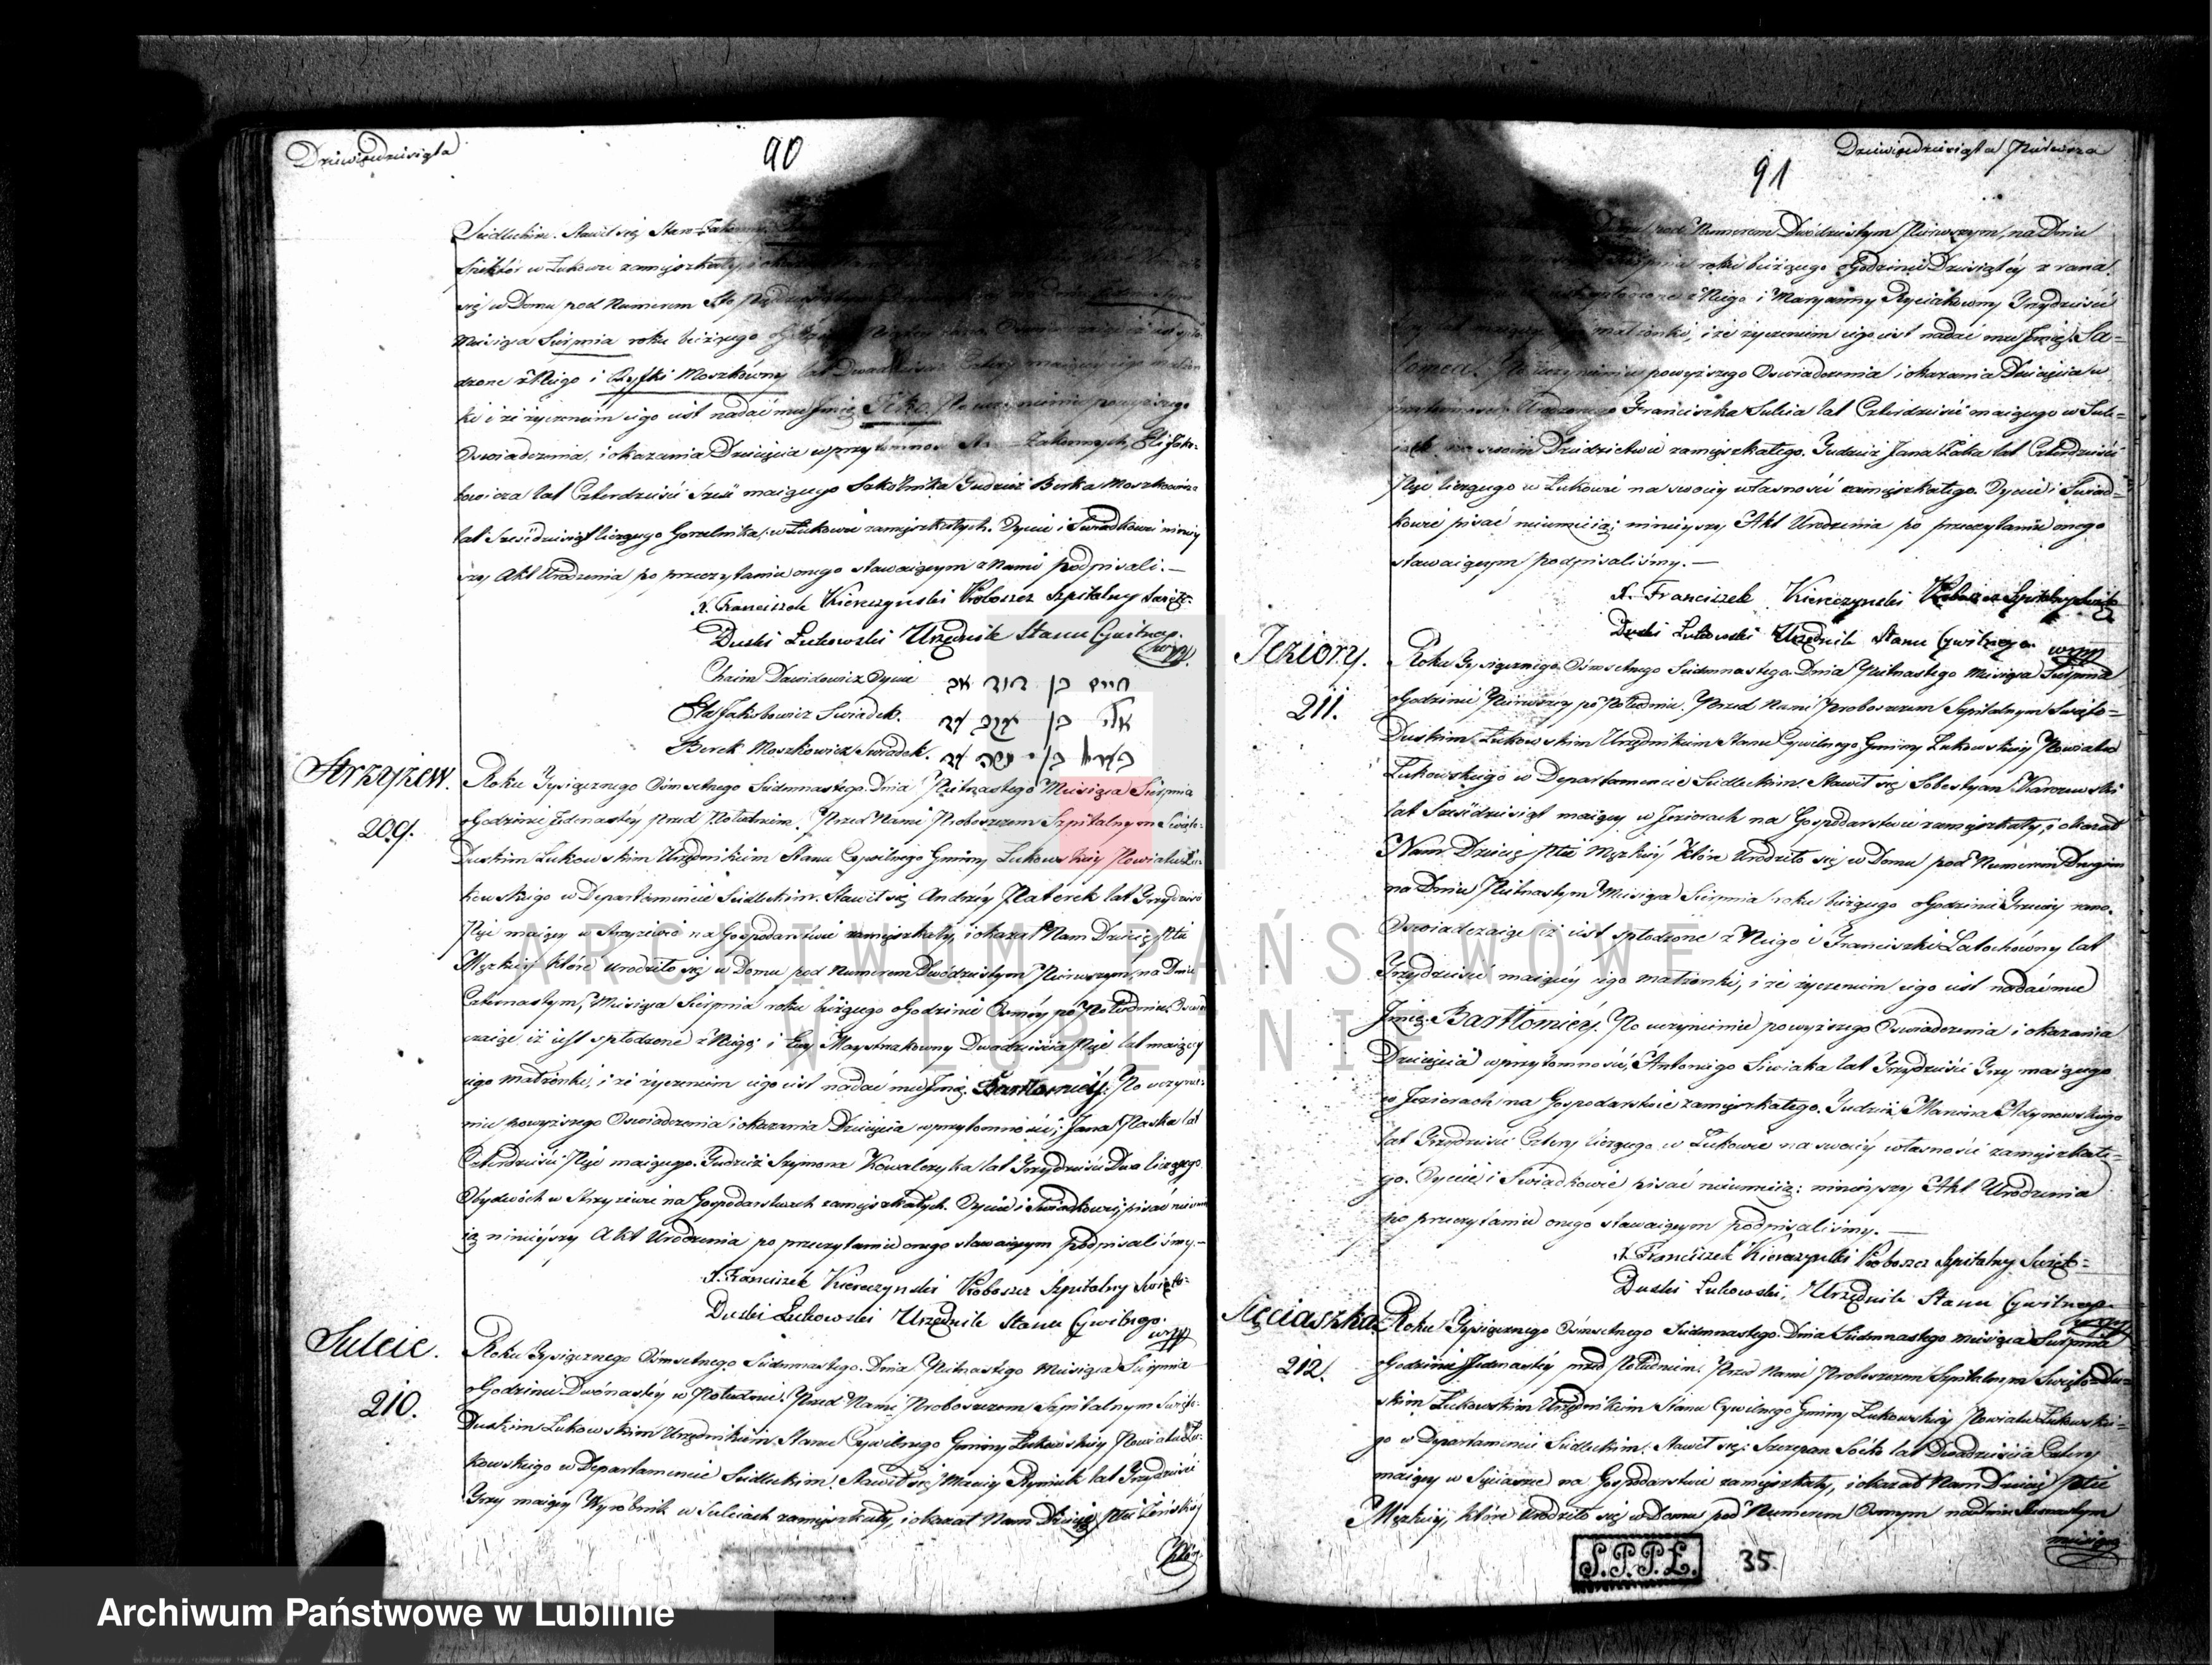 Dziewięćdziesiąta
90
Siedleckim. Stawił się Star=Zakonny
w Łukowie zamieszkały, i okazał
się w Domu pod Numerem Sto
Miesiąca Sierpnia roku bieżącego
dzone z Niego i Ryfki Moszkówny lat Dwadzieścia Cztery maiącey iego małżon
ki i że życzeniem iego iest nadać mu Imię Po uczynieniu powyższego
Oswiadczenia, i okazania Dziecięcia w przytomnos Star=Zakonnych, Eli Jako-
bowicza lat Czterdzieści Sześć maiącego Szkolnika, Tudzież Berka Moszkowicza
lat Sześćdziesiąt liczącego Gorzelnika, w Łukowie zamięszkałych. Oyciec i Swiadkowie niniey
szy Akt Urodzenia po przeczytaniu onego stawaiącym z Nami podpisali.—
X. Franciszek Kierczynski Proboszcz Szpitalny Swięto-
Duski Łukowski Urzędnik Stanu Cywilnego.
mpp.
Chaim Dawidowicz Oyciec חיים בן דוד אב
Ela Jakobowicz Swiadek. אלי בן יעקב עד
Berek Moszkowicz Swiadek. בערק בן משה עד
Strzyżew.
209.
Roku Tysiącznego Osmsetnego Siedmnastego. Dnia Piętnastego Miesiąca Sierpnia
o Godzinie Jedenastey przed Południem. Przed Nami Proboszczem Szpitalnym Swięto-
Duskim Łukowskim Urzędnikiem Stanu Cywilnego Gminy Łukowskiey Powiatu Łu-
kowskiego w Departamencie Siedleckim. Stawił się Andrzey Platerek lat Trzydzieści
Pięć maiący w Strzyżewie na Gospodarstwie zamięszkały, i okazał Nam Dziecię Płci
Męzkiey które urodziło się w Domu pod Numerem Dwódziestym Pierwszym, na Dniu
Czternastym, Miesiąca Sierpnia roku bieżącego o Godzinie Osmey po Południu. Oswiad
czaiąc iż iest spłodzone z Niego i Ewy Maystrakowny Dwadzieścia Pięć lat maiącey
iego małżonki, i że życzeniem iego iest nadać mu Imię. Bartłomiey. Po uczynie-
niu powyższego Oswiadczenia i okazania Dziecięcia w przytomności, Jana Płaska lat
Czterdzieści Pięć maiącego. Tudzież Szymona Kowalczyka lat Trzydzieści Dwa liczącego
Obydwóch w Strzyżewie na Gospodarstwach zamięszkałych. Oyciec i Swiadkowie, pisać nieumie
ią ninieyszy Akt Urodzenia po przeczytaniu onego stawaiącym podpisaliśmy.—
X. Franciszek Kierczynski Proboszcz Szpitalny Swięto-
Duski Łukowski Urzędnik Stanu Cywilnego.
mpp
Suleie.
210.
Roku Tysiącznego Osmsetnego Siedmnastego. Dnia Piętnastego Miesiąca Sierpnia
o Godzinie Dwónastey w Południe. Przed Nami Proboszczem Szpitalnym Swięto-
Duskim Łukowskim Urzędnikiem Stanu Cywilnego Gminy Łukowskiey Powiatu Łu-
kowskiego w Departamencie Siedleckim. Stawił się Maciey Rymiek lat Trzydzieści
Trzy maiący Wyrobnik w Suleiach zamięszkały, i okazał Nam Dziecię Płci Zeńskiey
które
Dziewięćdziesiąta Pierwsza
91
pod Numerem Dwódziestym Pierwszym, na Dniu
Sierpnia roku bieżącego o Godzinie Dziesiątey z rana.
spłodzone z Niego i Maryanny Ryciakowny Trzydzieści
lat maiącey iego małżonki, i że życzeniem iego iest nadać mu Imię. Sa-
lomea. Po uczynieniu powyższego Oswiadczenia i okazania Dziecięcia w
przytomności Urodzonego Franciszka Suleia lat Czterdzieści maiącego w Sule-
iach na swoim Dziedzictwie zamięszkałego. Tudzież Jana Żaka lat Czterdzieści
Pięć liczącego w Łukowie na swoiey własności zamięszkałego. Oyciec i Swiad-
kowie pisać nieumieią; ninieyszy Akt Urodzenia po przeczytaniu onego
stawaiącym podpisaliśmy.—
X. Franciszek Kierczynski Proboszcz Szpitalny Swięto
Duski Łukowski Urzędnik Stanu Cywilnego mpp
Jeziory.
211.
Roku Tysiącznego Osmsetnego Siedmnastego. Dnia Piętnastego Miesiąca Sierpnia
o Godzinie Pierwszey po Południu. Przed Nami Proboszczem Szpitalnym Swięto-
Duskim Łukowskim Urzędnikiem Stanu Cywilnego Gminy Łukowskiey Powiatu
Łukowskiego w Departamencie Siedleckim. Stawił się Sobestyan Karczewski
lat Sześćdziesiąt maiący w Jeziorach na Gospodarstwie zamięszkały, i okazał
Nam Dziecię Płci Męzkiey które Urodziło się w Domu pod Numerem Drugim
na Dniu Piętnastym Miesiąca Sierpnia roku bieżącego o Godzinie Trzeciey rano.
Oswiadczaiąc iż iest spłodzone z Niego i Franciszki Latochówny lat
Trzydzieści maiącey iego małżonki, i że życzeniem iego iest nadać mu
Imię. Bartłomiey. Po uczynieniu powyższego Oswiadczenia i okazania
Dziecięcia w przytomności, Antoniego Siwiaka lat Trzydzieści Trzy maiącego
w Jeziorach na Gospodarstwie zamięszkałego. Tudzież Marcina Adynowskiego
lat Trzydzieści Cztery liczącego w Łukowie na swoiey własności zamięszkałe-
go. Oyciec i Swiadkowie pisać nieumieią: ninieyszy Akt Urodzenia
po przeczytaniu onego stawaiącym podpisaliśmy.—
X. Franciszek Kierczynski Proboszcz Szpitalny Swięto-
Duski Łukowski, Urzędnik Stanu Cywilnego
mpp
Sięciaszka.
212.
Roku Tysiącznego Osmsetnego Siedmnastego. Dnia Siedmnastego miesiąca Sierpnia
o Godzinie Jedenastey przed Południem. Przed Nami Proboszczem Szpitalnym Swięto=Du-
skim Łukowskim Urzędnikiem Stanu Cywilnego Gminy Łukowskiey Powiatu Łukowskie-
go w Departamencie Siedleckim. Stawił się: Szczepan Soćko lat Dwadzieścia Cztery
maiący w Sięciaszce na Gospodarstwie zamięszkały, i okazał Nam Dziecię Płci
Męzkiey, które urodziło się w Domu pod Numerem Osmym na Dniu
miesiąca
S.P.P.Ł.
35
ARCHIWUM PAŃSTWOWE
W LUBLINIE
Archiwum Państwowe w Lublinie